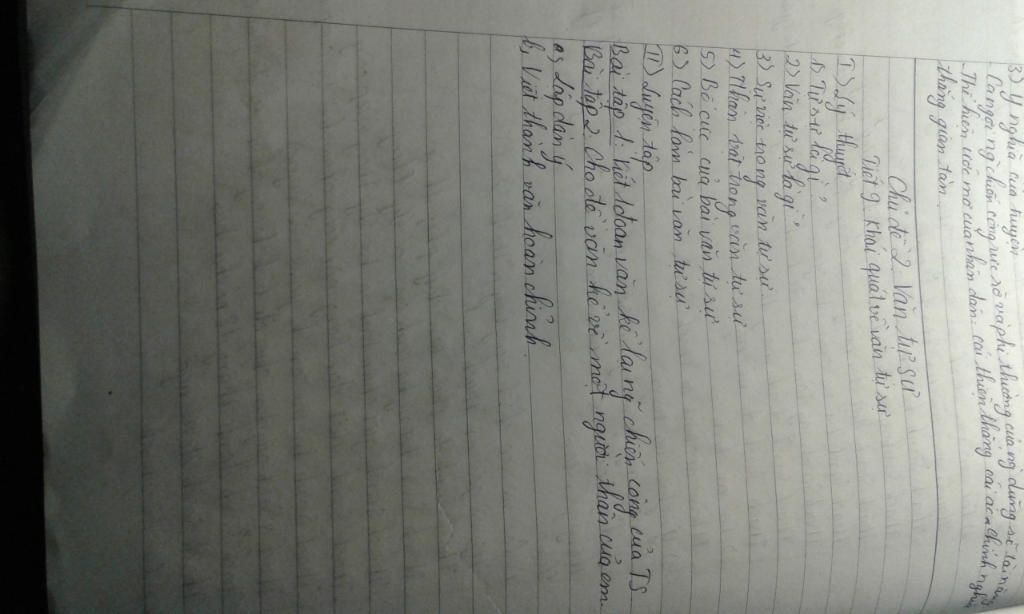 3) Ý nghĩa của truyện
Ca ngợi ng chiến công rực rỡ và phi thường của ng dũng sĩ tài năng
Thể hiện ước mơ của nhân dân: cái thiện thắng cái ác, chính nghĩa
thắng gian tàn
Chủ đề 2 Văn tự sự
Tiết 9 Khái quát về văn tự sự
I) Lý thuyết
1) Tự sự là gì?
2) Văn tự sự là gì?
3) Sự việc trong văn tự sự
4) Nhân vật trong văn tự sự
5) Bố cục của bài văn tự sự
6) Cách làm bài văn tự sự
II) Luyện tập
Bài tập 1: Viết 1 đoạn văn kể lại ng chiến công của TS
Bài tập 2 Cho đề văn kể về một người thân của em
a, Lập dàn ý
b, Viết thành văn hoàn chỉnh.